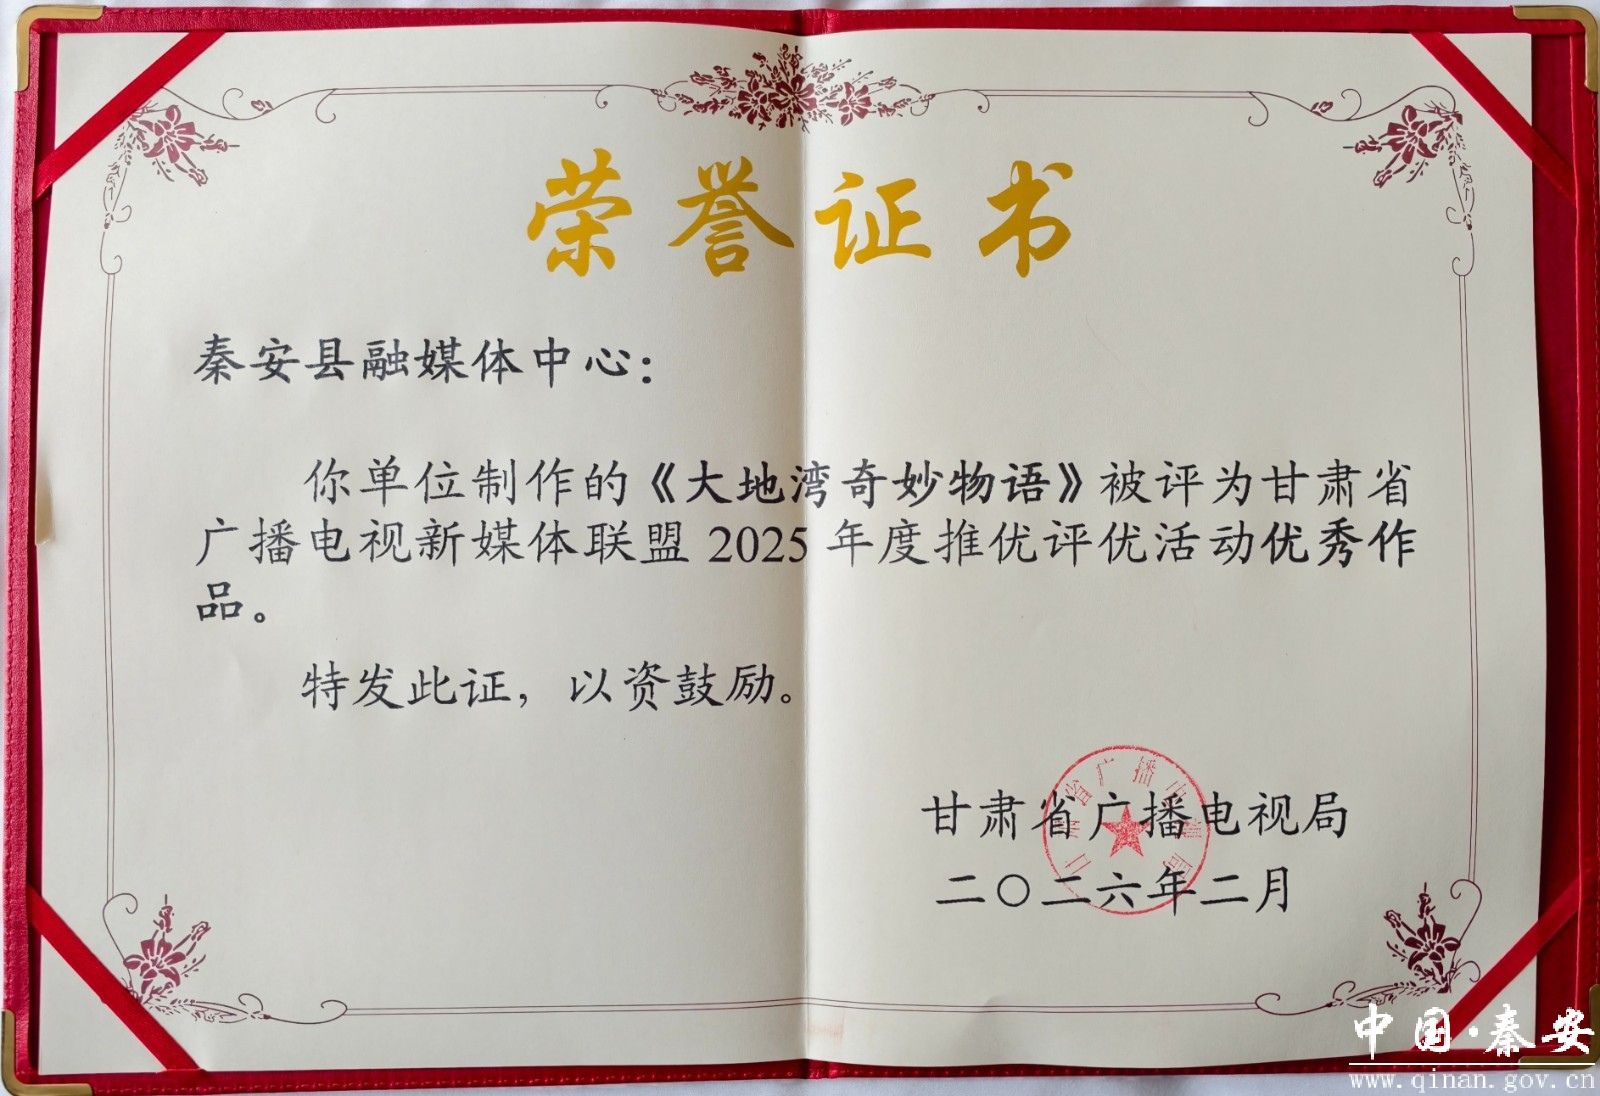 荣誉证书
秦安县融媒体中心：
你单位制作的《大地湾奇妙物语》被评为甘肃省
广播电视新媒体联盟 2025 年度推优评优活动优秀作
品。
特发此证，以资鼓励。
甘肃省广播电视局
二〇二六年二月
甘肃省广播电视局
中国·秦安
www.qinan.gov.cn